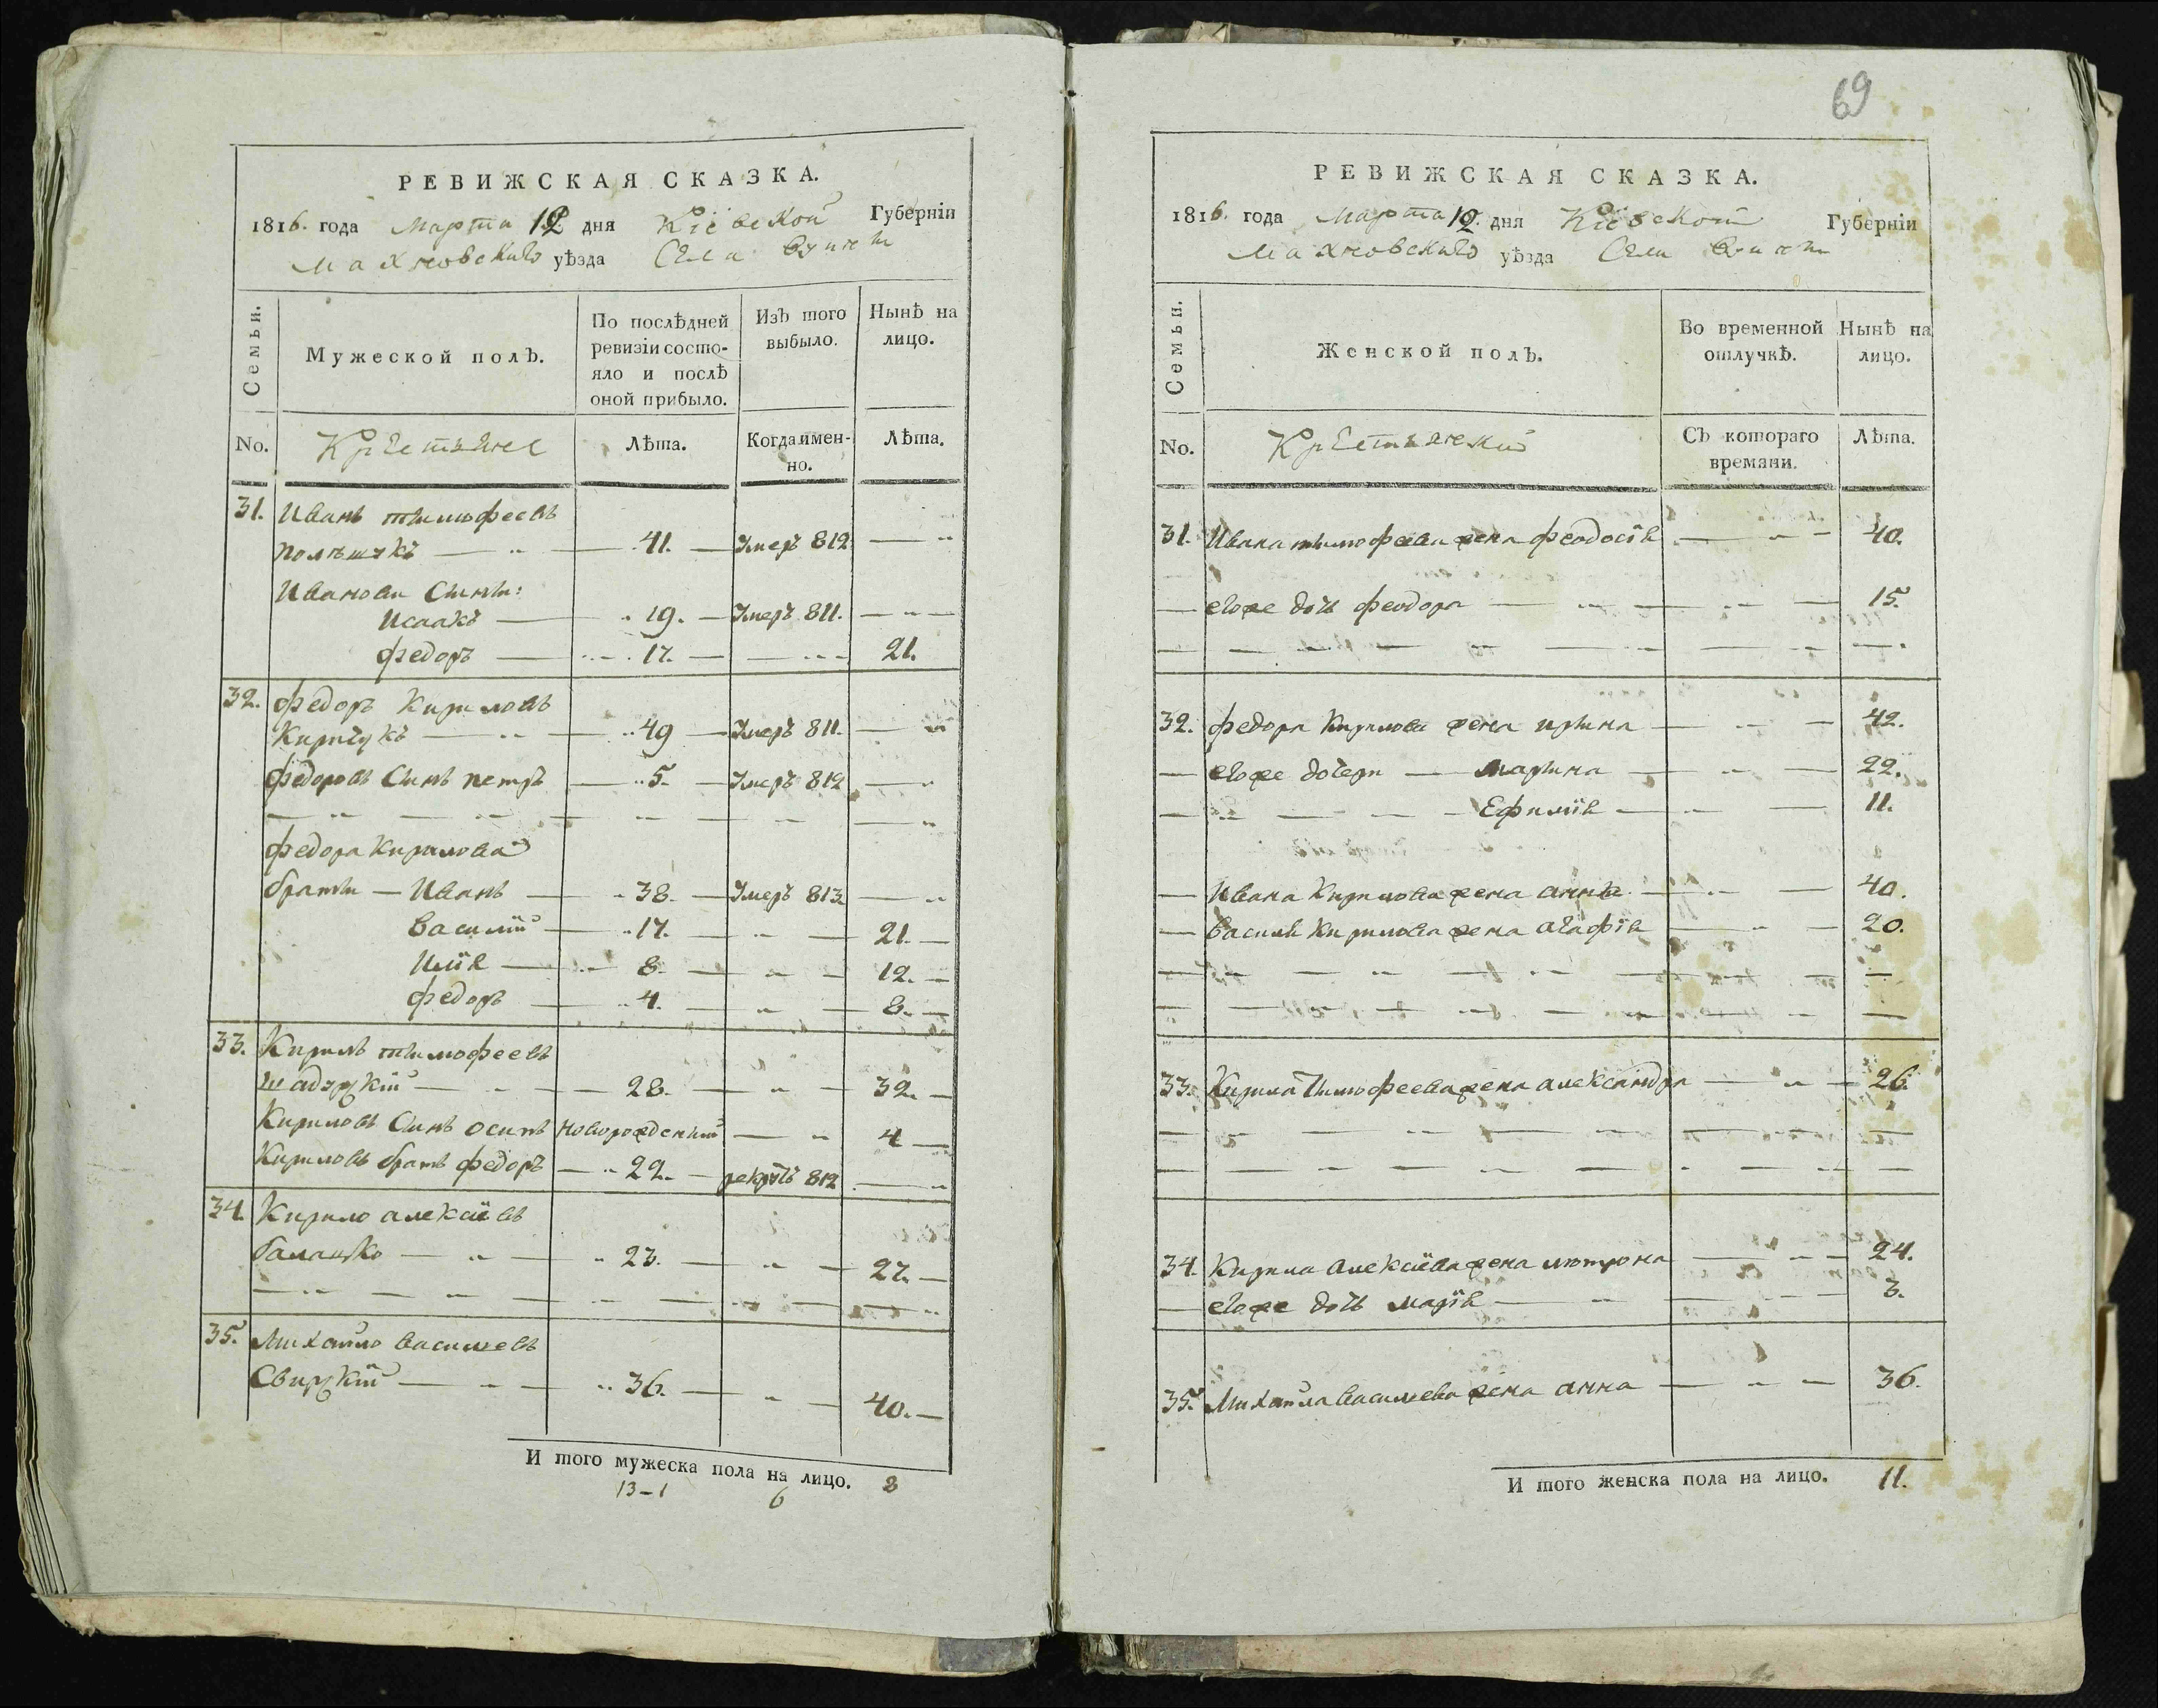 РЕВИЖСКАЯ СКАЗКА.
1816. года Марта 12 дня Кіевской Губерніи
Махновскаго уѣзда Села
Семьи.
Мужеской полъ.
По послѣдней ревизіи состо-
яло и послѣ оной прибыло.
Изъ того выбыло.
Нынѣ на лицо.
No. Крестьяне Лѣта. Когда имен-
но. Лѣта.
31. Иванъ тимофеевъ
полѣщукъ 41. Умеръ 812
Ивановы Сыны:
Исаакъ 19. Умеръ 811.
федоръ 17. 21.
32. федоръ Кириловъ
Киричукъ 49 Умеръ 811.
федоровъ Сынъ петръ 5. Умеръ 812
федора Кирилова
братьи Иванъ 38. Умеръ 813.
Василій 17. 21.
Илія 8. 12.
федоръ 4. 8.
33. Кирилъ тимофеевъ
шадурскій 28. 32.
Кириловъ Сынъ осипъ новорожденный 4
Кириловъ братъ федоръ 22. рекрутъ 812
34. Кирило алексіевъ
23. 27.
35. Михайло васильевъ
Свирскій 36. 40.
И того мужеска пола на лицо. 8
13-1 6
69
РЕВИЖСКАЯ СКАЗКА.
1816. года Марта 12. дня Кіевской Губерніи
Махновскаго уѣзда Села
Семьи.
Женской полъ.
Во временной отлучкѣ.
Нынѣ на лицо.
No. Крестьянский Съ котораго
времяни. Лѣта.
31. Ивана тимофеева жена феодосія 40.
егоже дочь феодора 15.
32. федора Кирилова жена ирина 42.
егоже дочери Марина 22.
Ефимія 11.
Ивана Кирилова жена анна 40.
василя Кирилова жена агафія 20.
33. Кирила Тимофеева жена александра 26.
34. Кирила алексіева жена мотрона 24.
егоже дочь марія 3.
35. Михайла васильева жена анна 36.
И того женска пола на лицо. 11.